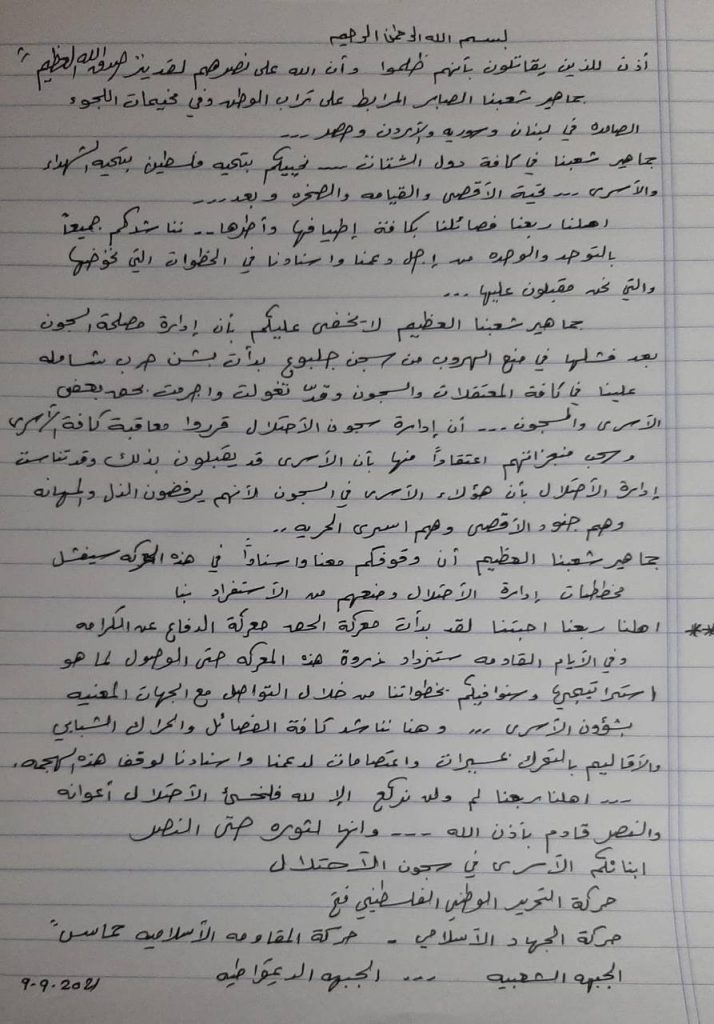 بسم الله الرحمن الرحيم
أذن للذين يقاتلون بأنهم ظلموا وأن الله على نصرهم لقدير صدق الله العظيم
جماهير شعبنا الصابر المرابط على تراب الوطن وفي مخيمات اللجوء
الصامده في لبنان وسوريه والأردن ومصر ...
جماهير شعبنا في كافة دول الشتات ... نحييكم بتحيه فلسطين بتحيه الشهداء
والأسرى ... تحية الأقصى والقيامه والصخره وبعد ....
اهلنا ربعنا فصائلنا بكافة إطيافها وأطرها .. نناشدكم جميعاً
بالتوحد والوحده من إجل دعمنا واسنادنا في الخطوات التي نخوضها
والتي نحن مقبلون عليها ...
جماهير شعبنا العظيم لا يخفى عليكم بأن إدارة مصلحة السجون
بعد فشلها في منع الهروب من سجن جلبوع بدأت بشن حرب شامله
علينا في كافة المعتقلات والسجون وقدّ تغولت واجرمت بحق بعض
الأسرى والسجون ... أن إدارة سجون الأحتلال قرروا معاقبة كافة الأسرى
وسحب منجزاتهم اعتقاداً منها بأن الأسرى قد يقبلون بذلك وقد تناست
إدارة الأحتلال بأن هؤلاء الأسرى في السجون لأنهم يرفضون الذل والمهانه
وهم جنود الأقصى وهم اسرى الحريه ..
جماهير شعبنا العظيم أن وقوفكم معنا واسناداً في هذه المعركه سيفشل
مخططات إدارة الأحتلال ومنعهم من الأستفراد بنا
** اهلنا ربعنا احبتنا لقد بدأت معركة الحق معركة الدفاع عن الكرامه
وفي الأيام القادمه ستزداد ذروة هذه المعركه حتى الوصول لما هو
استراتيجي وسنوافيكم بخطواتنا من خلال التواصل مع الجهات المعنيه
بشؤون الأسرى ... وهنا نناشد كافة الفصائل والحراك الشبابي
والأقاليم بالتحرك بمسيرات واعتصامات لدعمنا واسنادنا لوقف هذه الهجمه.
... اهلنا ربعنا لم ولن نركع إلا لله فلخسئ الأحتلال أعوانه
والنصر قادم بأذن الله ... وانها لثوره حتى النصر
ابنائكم الأسرى في سجون الأحتلال
حركة التحرير الوطني الفلسطيني فتح
حركة الجهاد الأسلامي - حركة المقاومه الأسلاميه حماس"
الجبهه الشعبيه ... الجبهه الديمقراطيه
9-9-2021